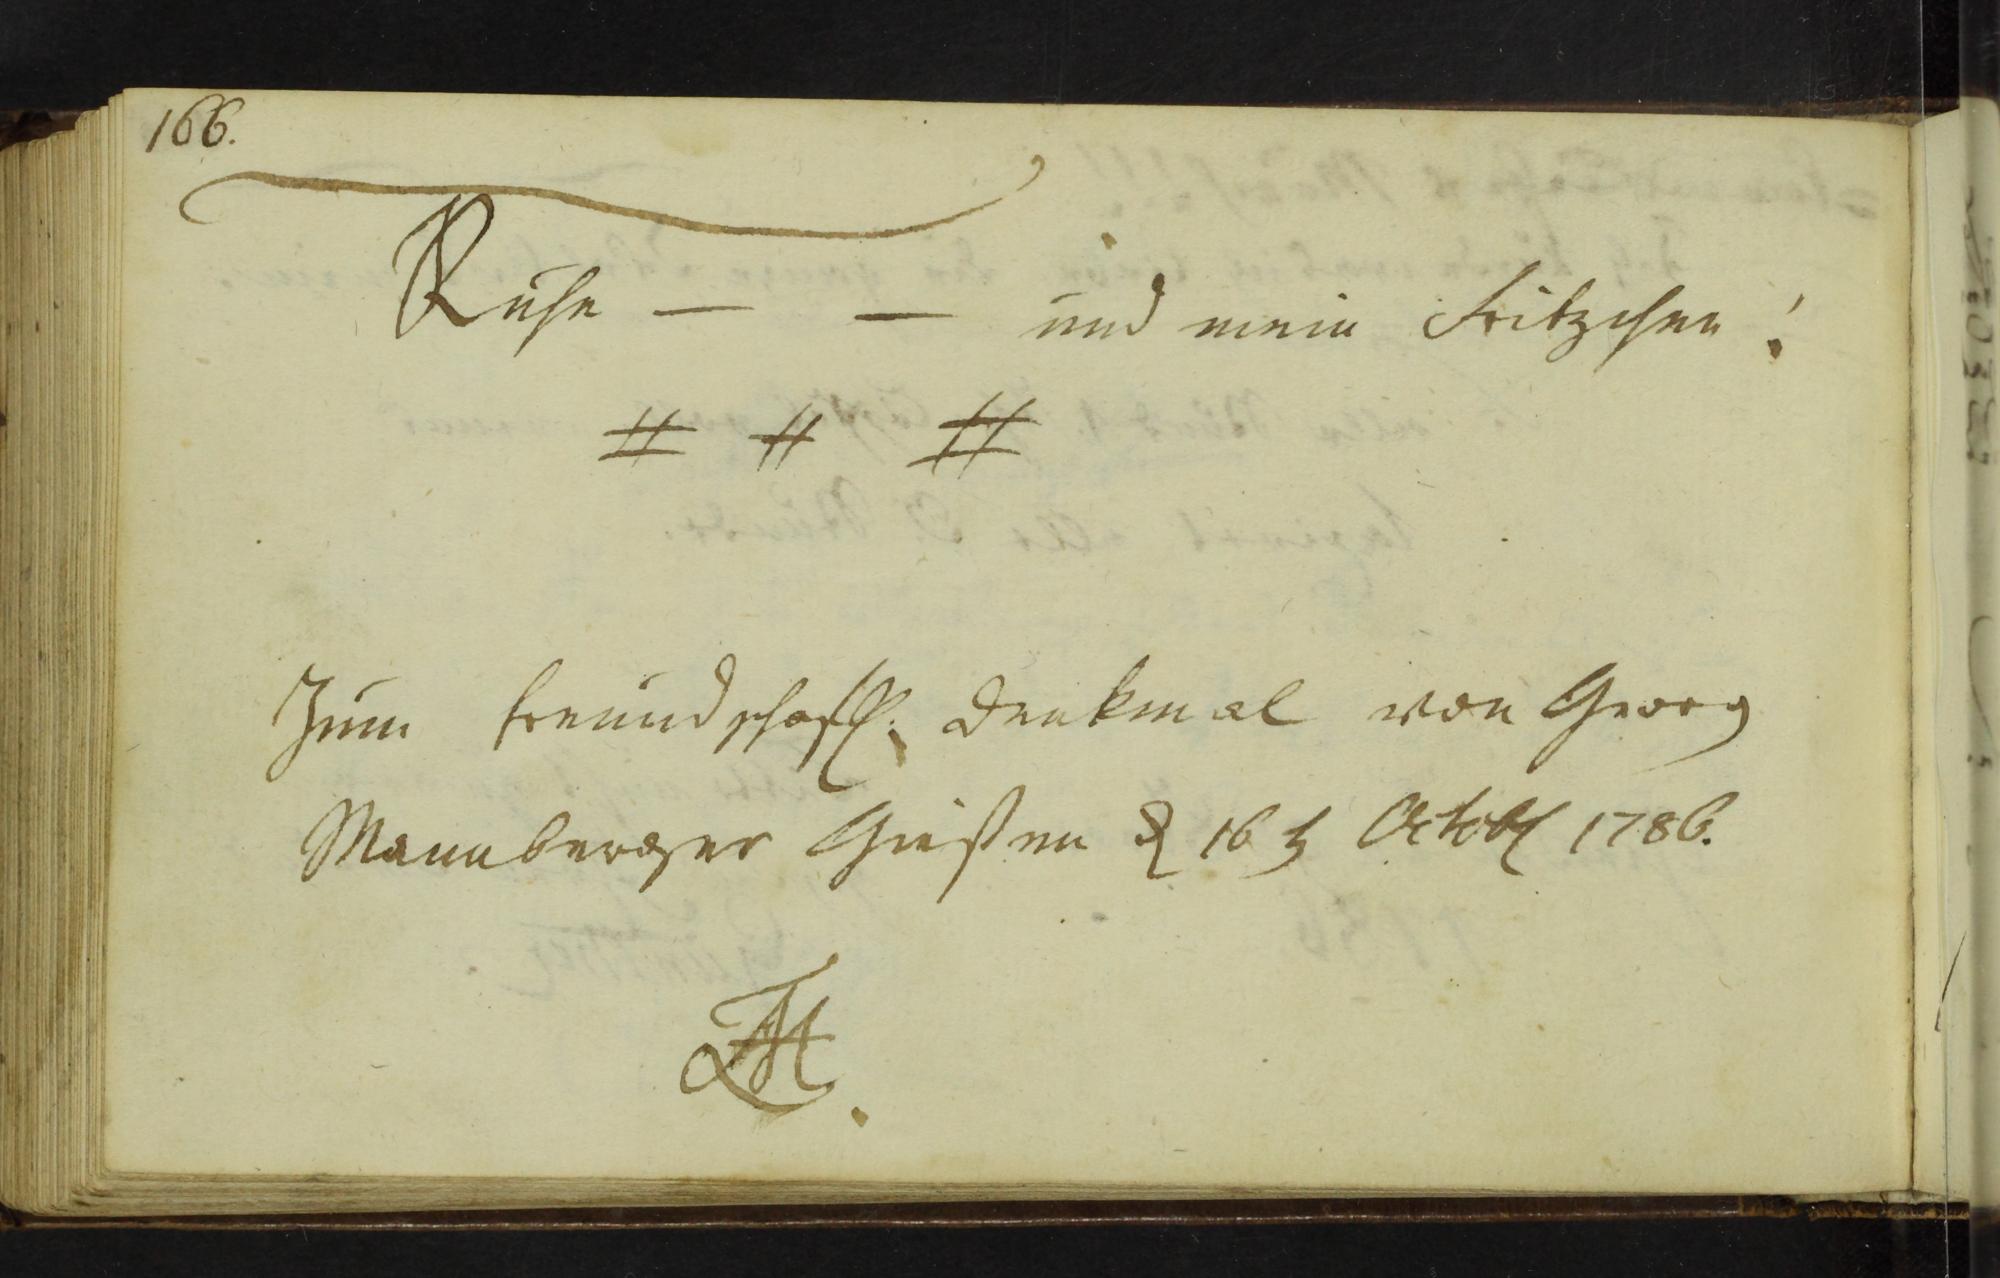 166.
Ruhe — — und mein Fritzchen!
# # #
Zum freundschaftl. Denkmal von Georg
Mannberger Giesen d 16 t Octobr 1786.